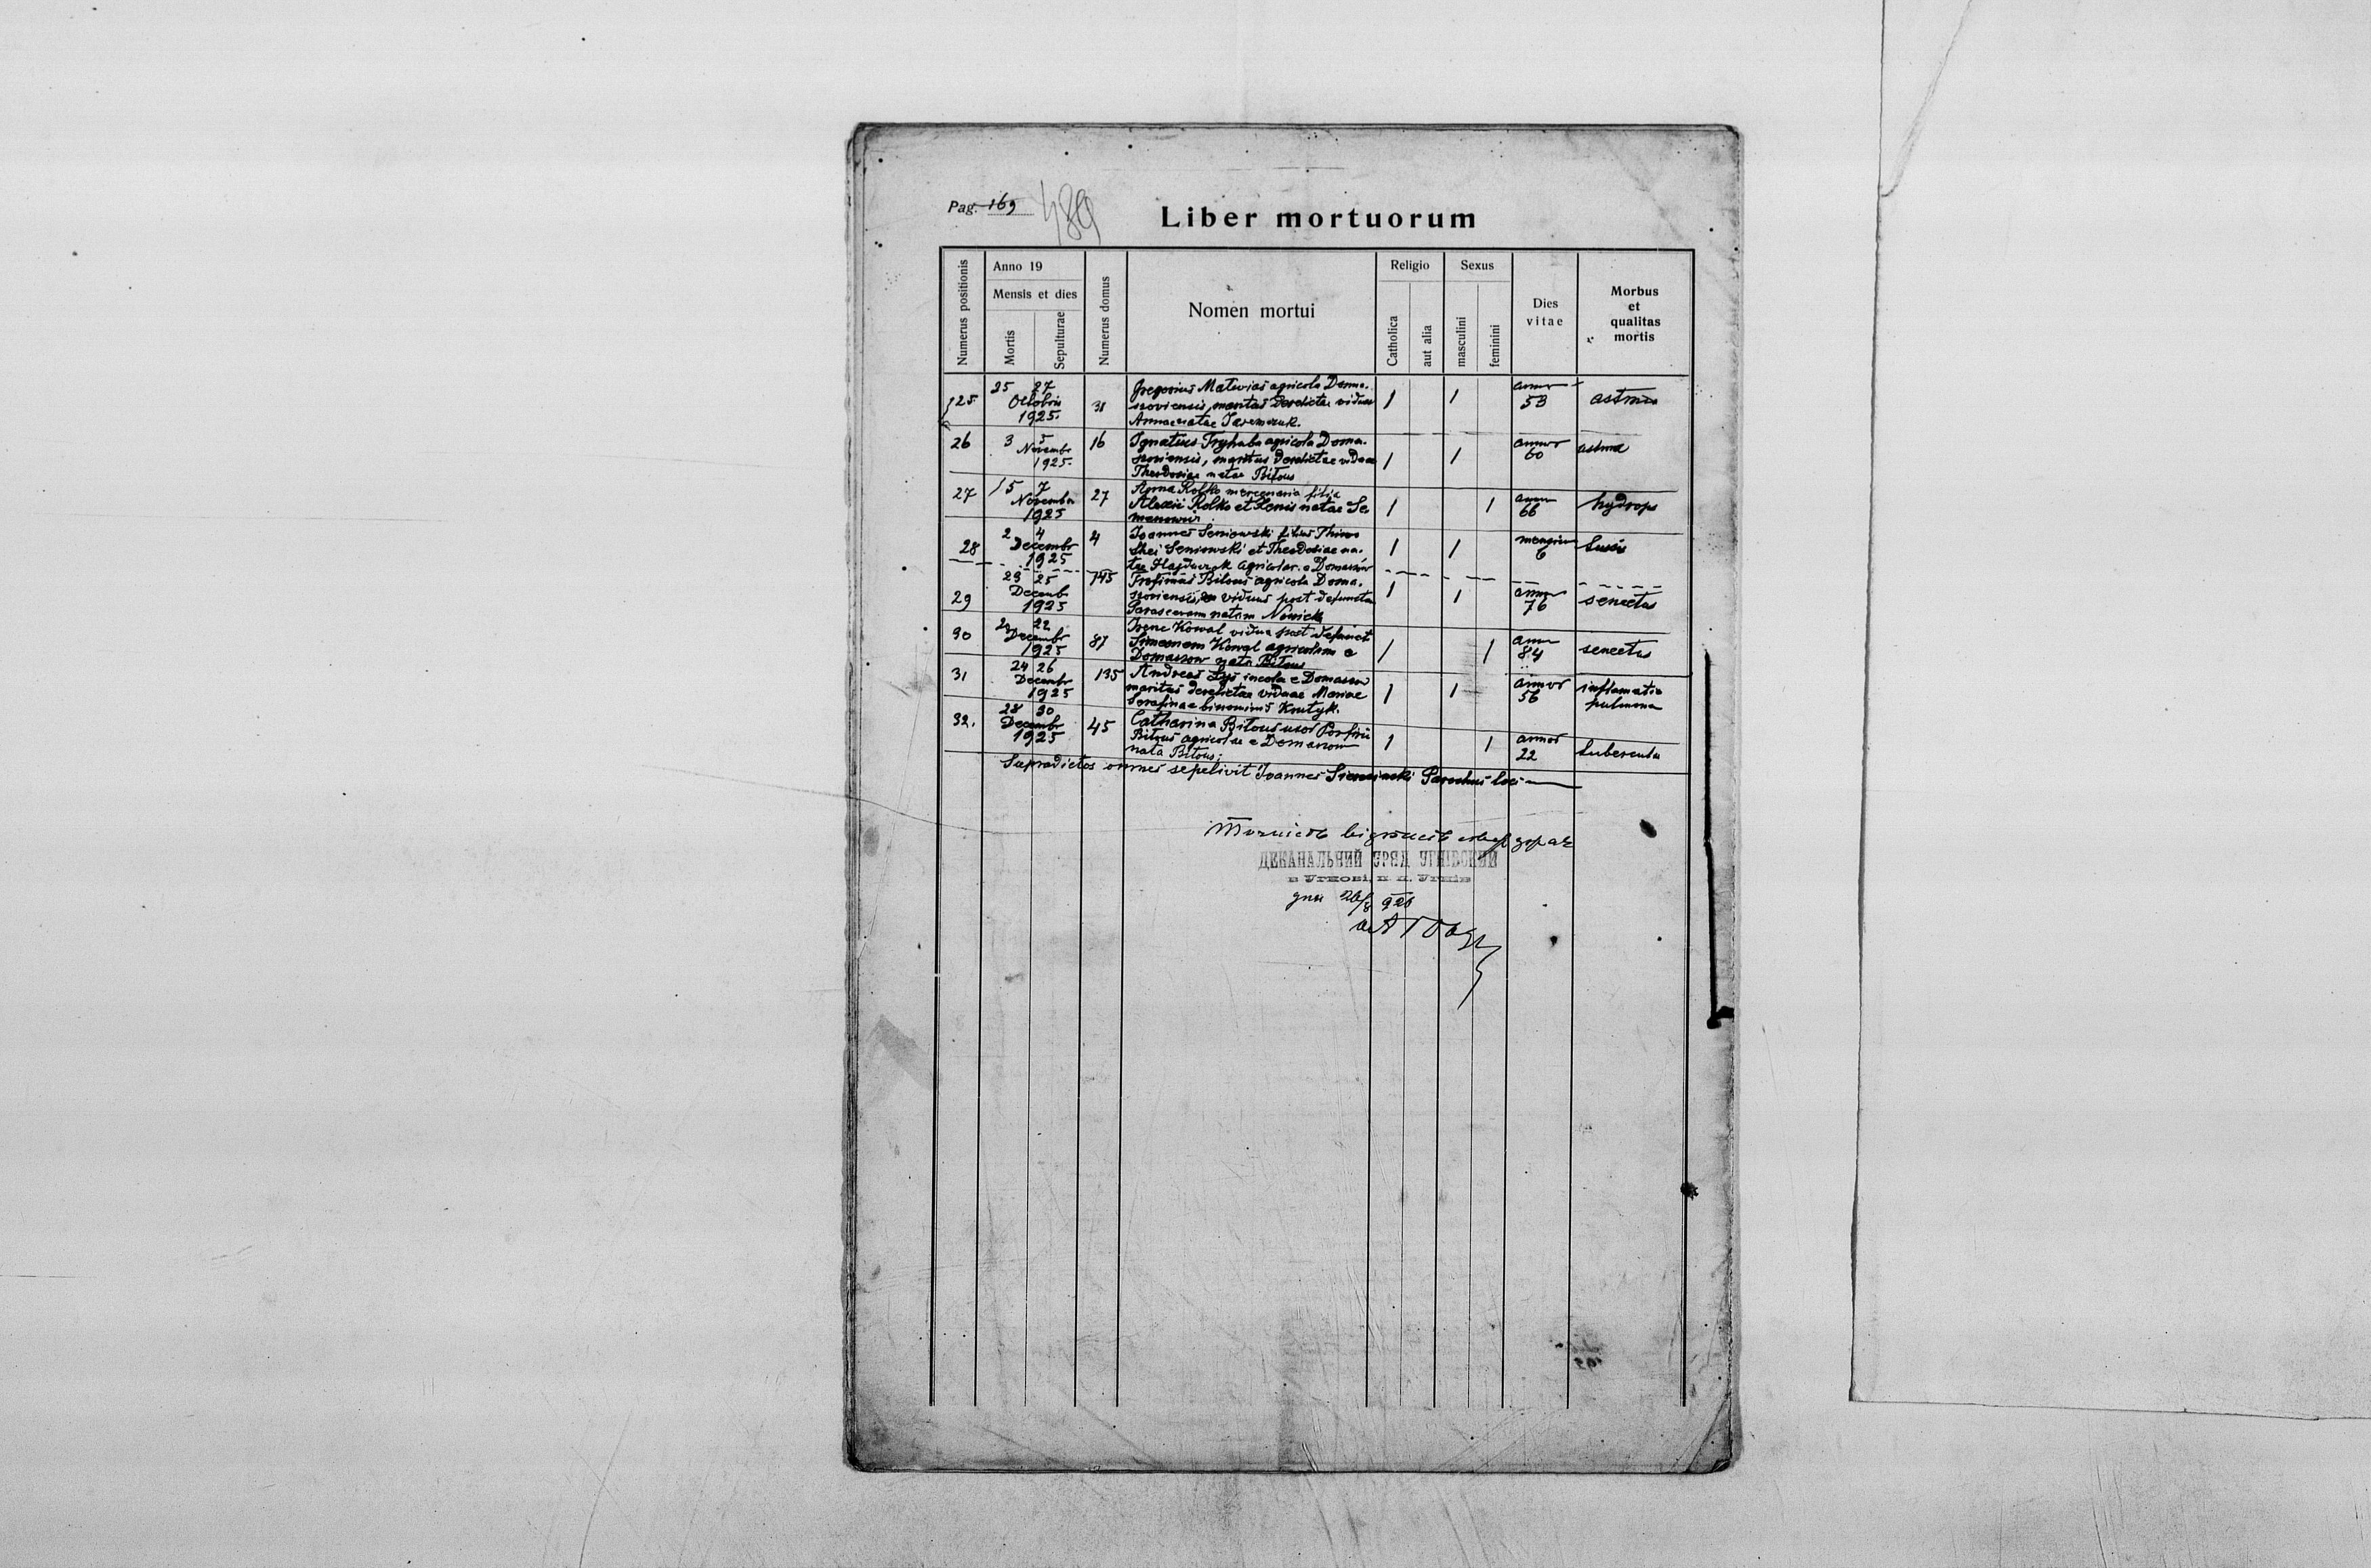 Pag. 169 489
Liber mortuorum
Numerus positionis
Anno 19
Mensis et dies
Mortis
Sepulturae
Numerus domus
Nomen mortui
Religio
Catholica
aut alia
Sexus
masculini
feminini
Dies
vitae
Morbus
et
qualitas
mortis
25 27
Octobris
1925.
125
31
Gregorius Matwias agricola Doma-
szoviensis, maritus derelictae viduae
Annae natae Jaremczuk.
1 1
annor
53
astma
26
3 5
Novembr
1925.
16
Ignatius Tryhuba agricola Doma-
szoviensis, maritus derelictae viduae
Theodosiae natae Biłous
1 1
annor
60
astma
27
5 7
Novembr
1925
27
Anna Rolko mercenaria filia
Alexii Rolko et Xenis natae Se
1 1
annor
66
hydrops
28
2 4
Decembr
1925
4
Joannes Seniowski filius Thimo
thei Seniowski et Theodosiae na-
tae Hajduczok agricolar. e Domaszów
1 1
mensium
6
tussis
29
23 25
Decembr
1925
145
Trofimus Biłous agricola Doma-
szoviensis, viduus post defunctam
Parascevam natam Nowick
1 1
annor
76
senectus
30
20 22
Decembr
1925
87
Irene Kowal vidua post defunct
Simeonem Kowal agricolam e
Domaszow nata Biłous
1 1
annor
84
senectus
31
24 26
Decembr
1925
135
Andreas Łys incola e Domaszow
maritus derelictae viduae Mariae
Serafinae binominis Krutyk.
1 1
annor
56
inflamatio
pulmona
32.
28 30
Decembr
1925
45
Catharina Biłous uxor Porfirii
Biłous agricolae e Domaszow
nata Biłous;
1 1
annor
22
tubercula
Supradictos omnes sepelivit Joannes Parochus loci
ДЕКАНАЛЬНИЙ УРЯД УГНІВСКИЙ
в Угнові, п. п. Угнів
дня 20/8 926